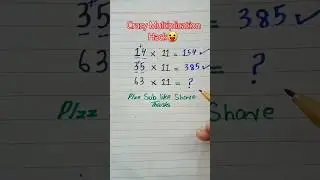 Crazy Multiplication
Hack😜
14 × 11 = 154 ✓
35 × 11 = 385 ✓
63 × 11 = ?
Plzz Sub like Share
Thanks
385 ✓
?
Plzz
Share